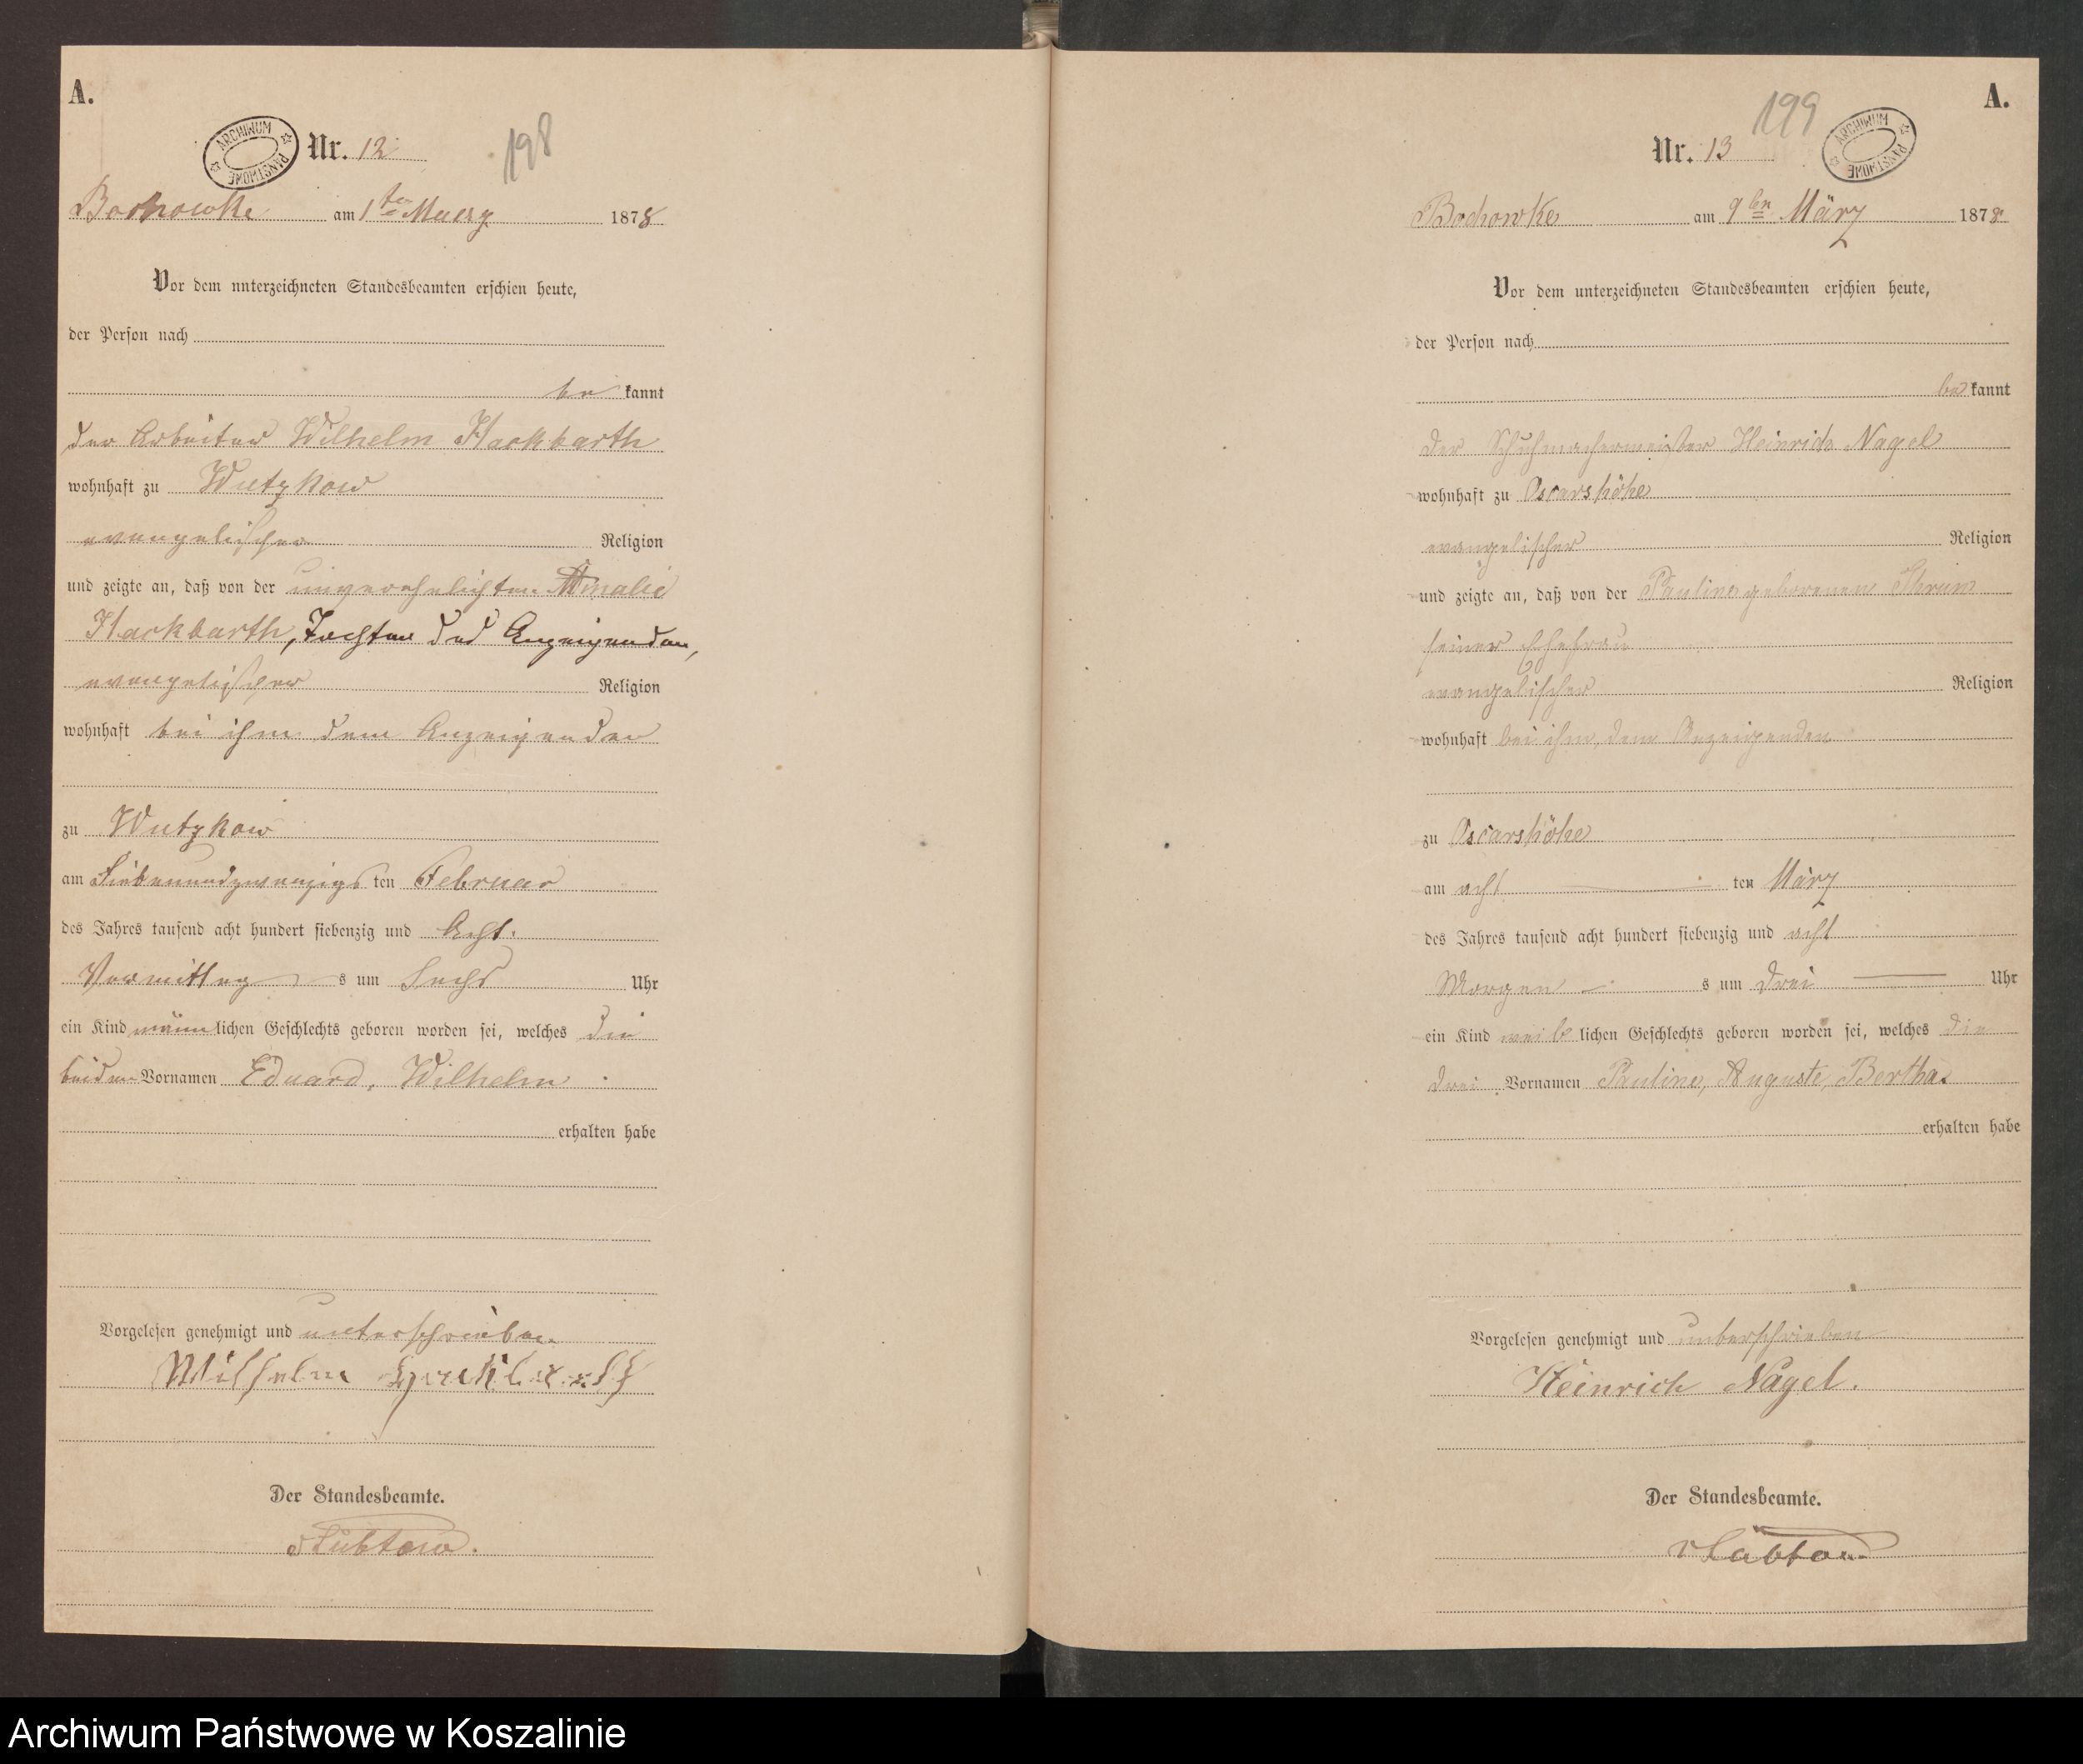 A.
ARCHIWUM PAŃSTWOWE
Nr. 12
198
Bochowke am 1ten Maerz 1878
Vor dem unterzeichneten Standesbeamten erschien heute,
der Person nach
be kannt
der Arbeiter Wilhelm Hackbarth
wohnhaft zu Wutzkow
evangelischer Religion
und zeigte an, daß von der unverehelichten Amalie
Hackbarth, Tochter des Anzeigenden,
evangelischer Religion
wohnhaft bei ihm dem Anzeigenden
zu Wutzkow
am Siebenundzwanzigs ten Februar
des Jahres tausend acht hundert siebenzig und Acht.
Vormittag s um Sechs Uhr
ein Kind männ lichen Geschlechts geboren worden sei, welches die
beiden Vornamen Eduard, Wilhelm
erhalten habe
Vorgelesen genehmigt und unterschrieben
Wilhelm Hackbarth
Der Standesbeamte.
vLübtow.
A.
199
ARCHIWUM PAŃSTWOWE
Nr. 13
Bochowke am 9ten März 1878
Vor dem unterzeichneten Standesbeamten erschien heute,
der Person nach
be kannt
der Schuhmachermeister Heinrich Nagel
wohnhaft zu Oscarshöhe
evangelischer Religion
und zeigte an, daß von der Pauline geborenen Thrun
seiner Ehefrau
evangelischer Religion
wohnhaft bei ihm, dem Anzeigenden
zu Oscarshöhe
am acht ten März
des Jahres tausend acht hundert siebenzig und acht
Morgen s um drei Uhr
ein Kind weib lichen Geschlechts geboren worden sei, welches die
drei Vornamen Pauline, Auguste, Bertha.
erhalten habe
Vorgelesen genehmigt und unterschrieben
Heinrich Nagel.
Der Standesbeamte.
vLübtow
Archiwum Państwowe w Koszalinie